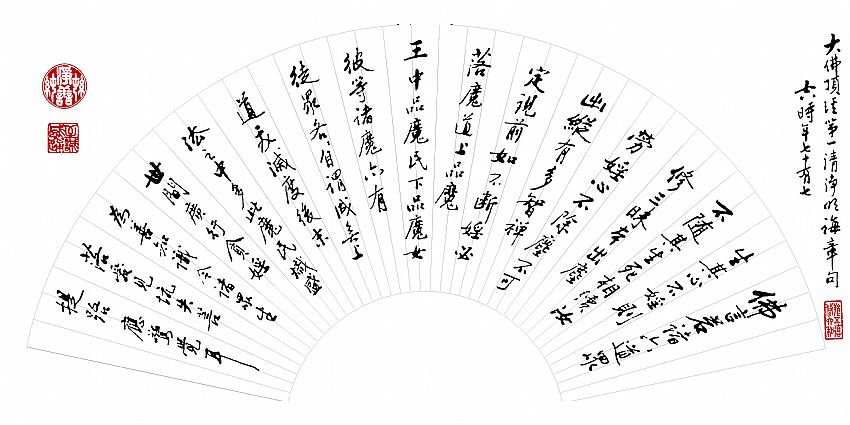 大佛頂經第一清淨明誨章句
時年七十有七
佛言若諸六道眾
生其心不婬則
不隨其生死相續汝
修三昧本出塵
勞婬心不除塵不可
出縱有多智禪
定現前如不斷婬必
落魔道上品魔
王中品魔民下品魔女
彼等諸魔亦有
徒眾各各自謂成無上
道我滅度後末
法之中多此魔民熾盛
世間廣行貪婬
為善知識令諸眾生
落愛見坑失菩
提路應驚覺耳